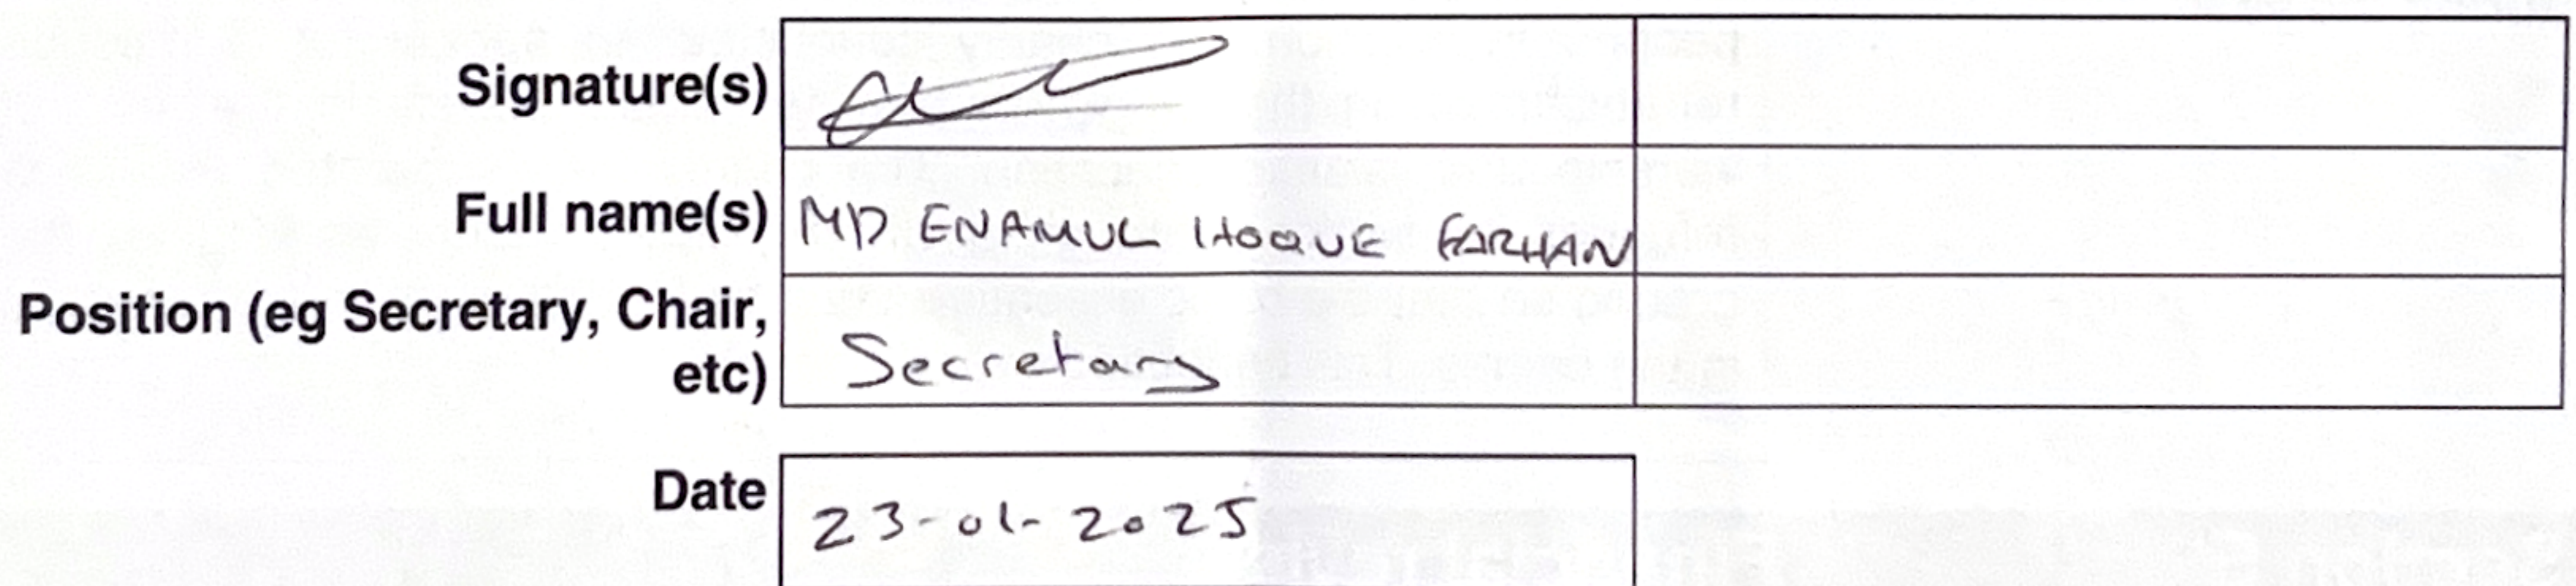 Signature(s)
Full name(s) MD ENAMUL HOQUE FARHAN
Position (eg Secretary, Chair,
etc) Secretary
Date 23-01-2025